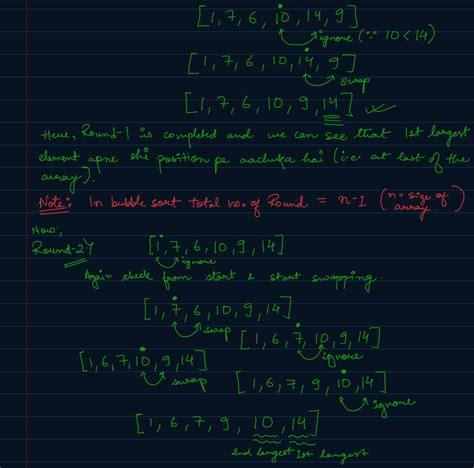 [1, 7, 6, 10, 14, 9]
ignore (∵ 10 < 14)
[1, 7, 6, 10, 14, 9]
swap
[1, 7, 6, 10, 9, 14]
Here, Round-1 is completed and we can see that 1st largest
element apne shi position pe aachuka hai (i.e. at last of the
array).
Note: In bubble sort total no. of Round = n-1 (n = size of
array.)
Now,
Round-2
[1, 7, 6, 10, 9, 14]
ignore
Again check from start & start swapping.
[1, 7, 6, 10, 9, 14]
swap
[1, 6, 7, 10, 9, 14]
ignore
[1, 6, 7, 10, 9, 14]
swap
[1, 6, 7, 9, 10, 14]
ignore
[1, 6, 7, 9, 10, 14]
2nd largest 1st largest